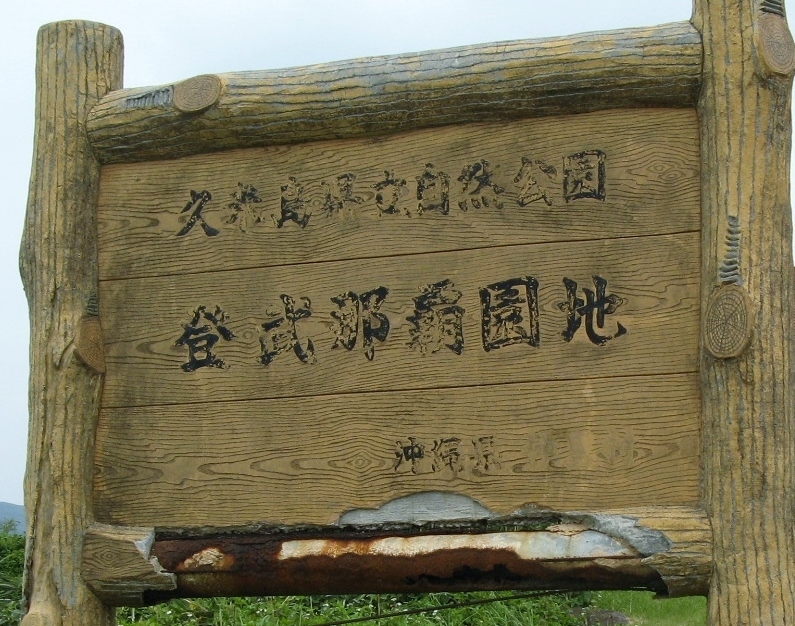 久米島県立自然公園
登武那覇園地
沖縄県